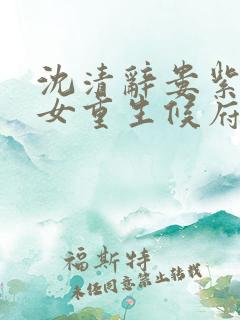 沈清辞娄紫
女重生候府
福斯特
未经同意禁止转载